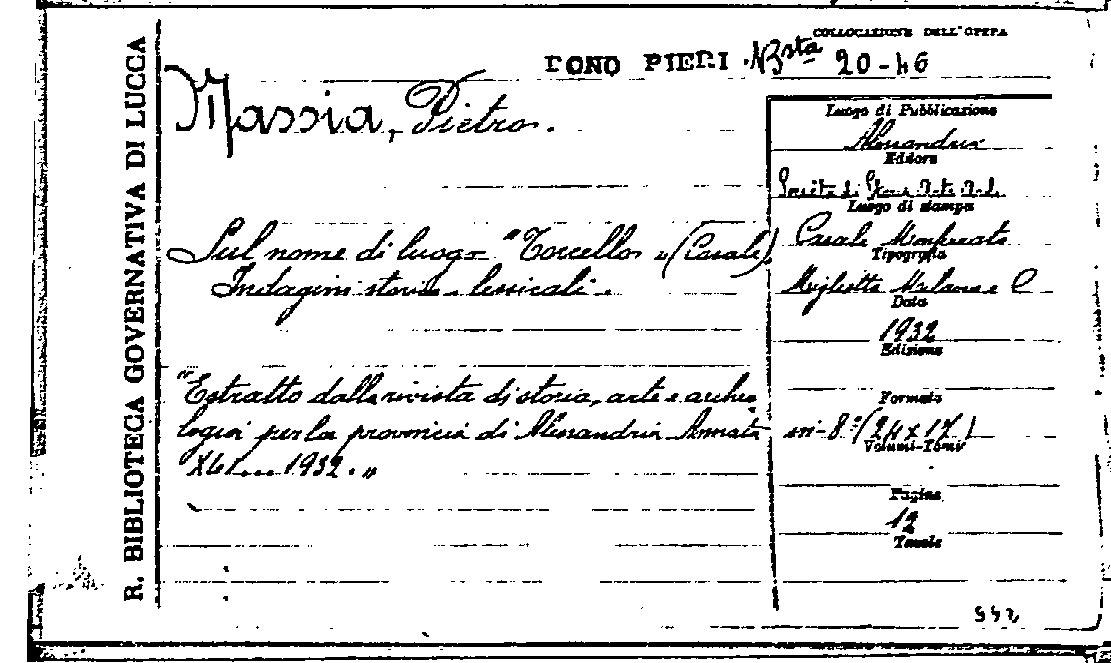 R. BIBLIOTECA GOVERNATIVA DI LUCCA
COLLOCAZIONE DELL'OPERA
DONO PIERI Bsta 20-46
Massia, Pietro.
Sul nome di luogo "Torcello" (Casale).
Indagini storico-lessicali.
"Estratto dalla rivista di storia, arte e archeo
logia per la provincia di Alessandria Annata
XLI... 1932."
Luogo di Pubblicazione
Alessandria
Editore
Società di Storia Arte
Luogo di stampa
Casale Monferrato
Tipografia
Miglietta Milano e C
Data
1932
Edizione
Formato
in-8° (24 x 17)
Volumi-Tomi
Pagine
12
Tavole
992